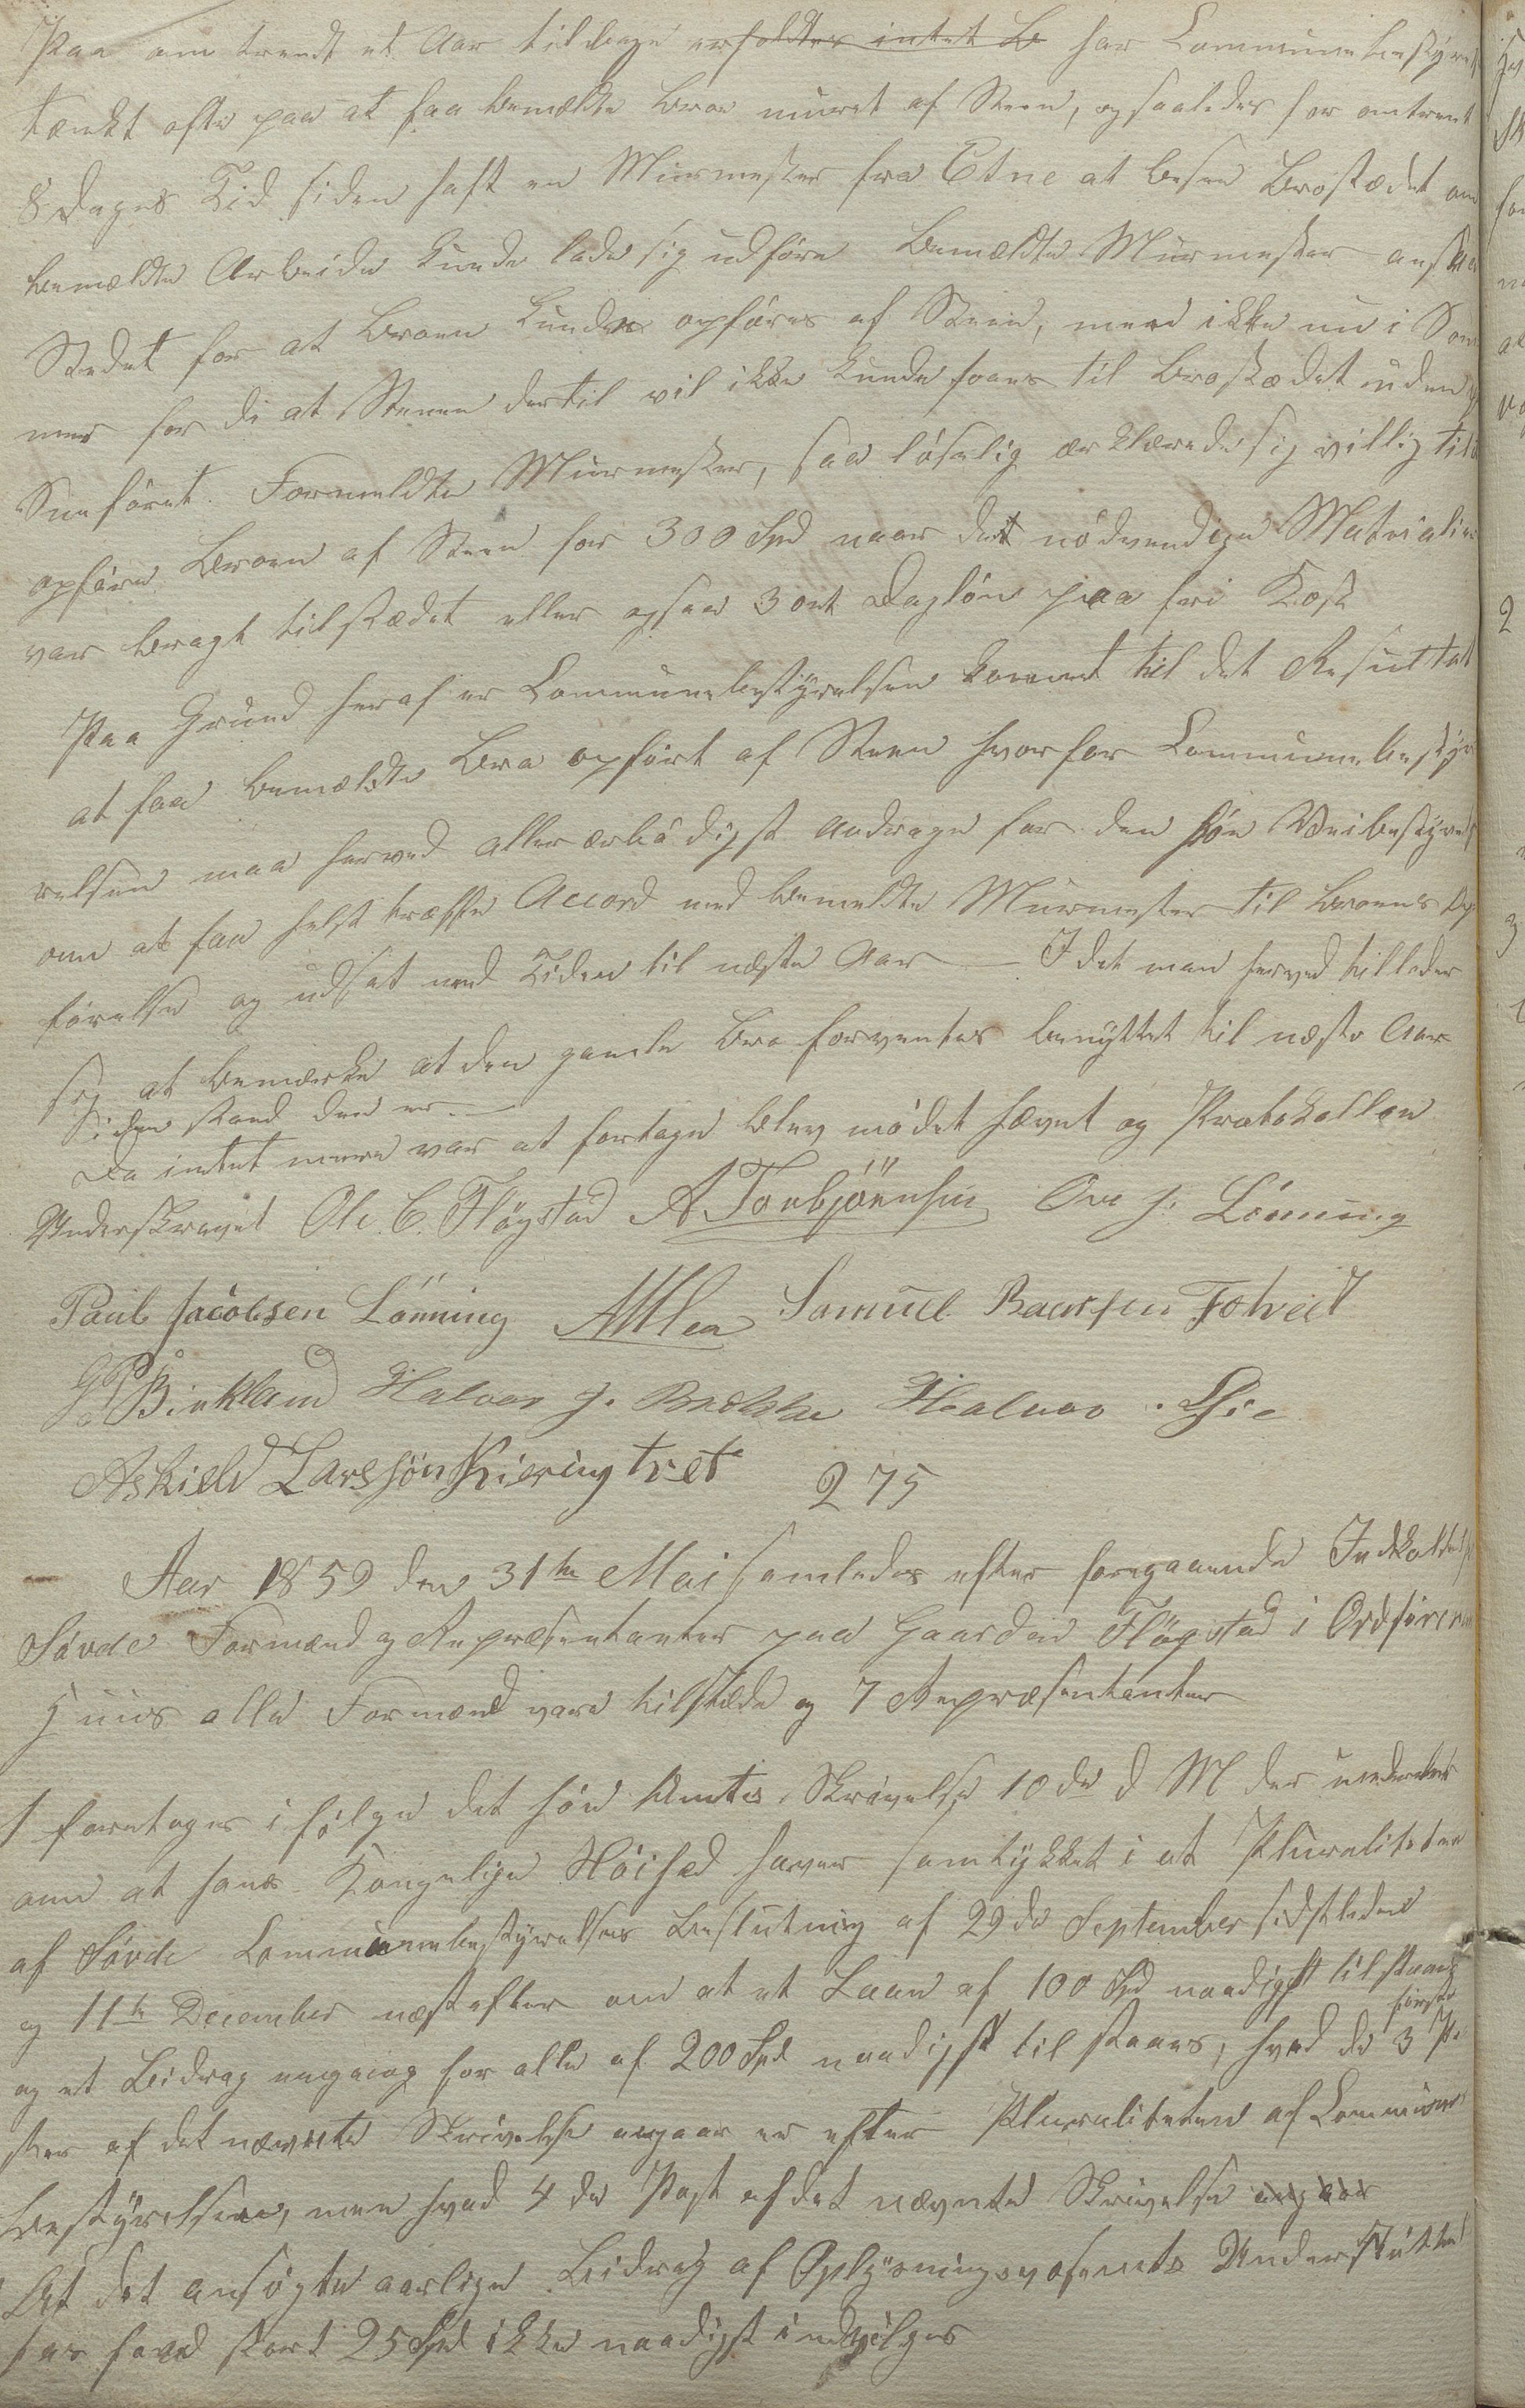 Paa om trendt et Aar tilbage erholdtes intet B har Communebestyrel
tænkt ofte paa at faa bemældte Broe muret af Steen, og saaledes for omtrent
8 Dages Tid siden haft en Muurmester fra Etne at besee Brostædet om
bemældte Arbeide kunde lade sig udføre Bemældte Muurmester ansaa
Stedet for at Broen kunde opføres af Steen, men ikke nu i Som
mer for di at Stenen dertil vil ikke kunde faaes til Brostædet uden p
Sneføret. Formeldte Muurmester, saa løselig erklærede sig villig til a
opføre Broen af Steen for 300 Spd naar det nødvendige Materialier
var bragt tilstædet eller ogsaa 3 ort Dagløn paa fri Kost
Paa Grund heraf er Communebestyrelsen kommet til det Resultat
at faa bemældte Bro opført af Steen hvorfor Communebesty
relsen maa herved allerærbødigst andrage for den høie Veibestyrels
om at faa helst træffe Accord med bemeldte Muurmester til Broens Op
førelse og udsat med Tiden til næste Aar – I det man herved tillader
sig at bemærke at den gamle Bro forventes benyttet til næste Aar
i den stand den er. –
Da intet mere var at fortage blev mødet hævet og Protokollen
Underskrevet Ole C. Fløgstad A Torbjörnsen Ove J. Lönning
Paul Jacobsen Lönning Samuel Baarsen Fotveit
G P Birkland Halvor J. Halvor . Lie
Askield Larssön Kieringtvet
275
Aar 1859 den 31te Mai samledes efter foregaaende Indkaldels
Søvde Formænd og Repræsentanter paa Gaarden Fløgstad i Ordførerens
Huus alle Formænd vare tilstæde og 7 Repræsentanter
1 foretoges i følge det høie Amtes Skrivelse 10de d M der underretter
om at hans Kongelige Høihed haver samtykket i at Pluraliteten
af Søvde Communebestyrelses Beslutning af 29de September sidstleden
og 11te December næstefter om at et Laan af 100 Spd naadigst tilstaaes
og et Bidrag engang for alle af 200 Spd naadigst til staaes, hvad de første 3 Po
ster af det nævnte Skrivelse angaar er efter Pluraliteten af Commune
bestyrelsen, men hvad 4de Post af det nævnte Skrivelse angaar
At det ansøgte aarlige Bidrag af Oplysningsvæsenets Understøttel
ses fond stort 25 Spd ikke naadigst indvilges